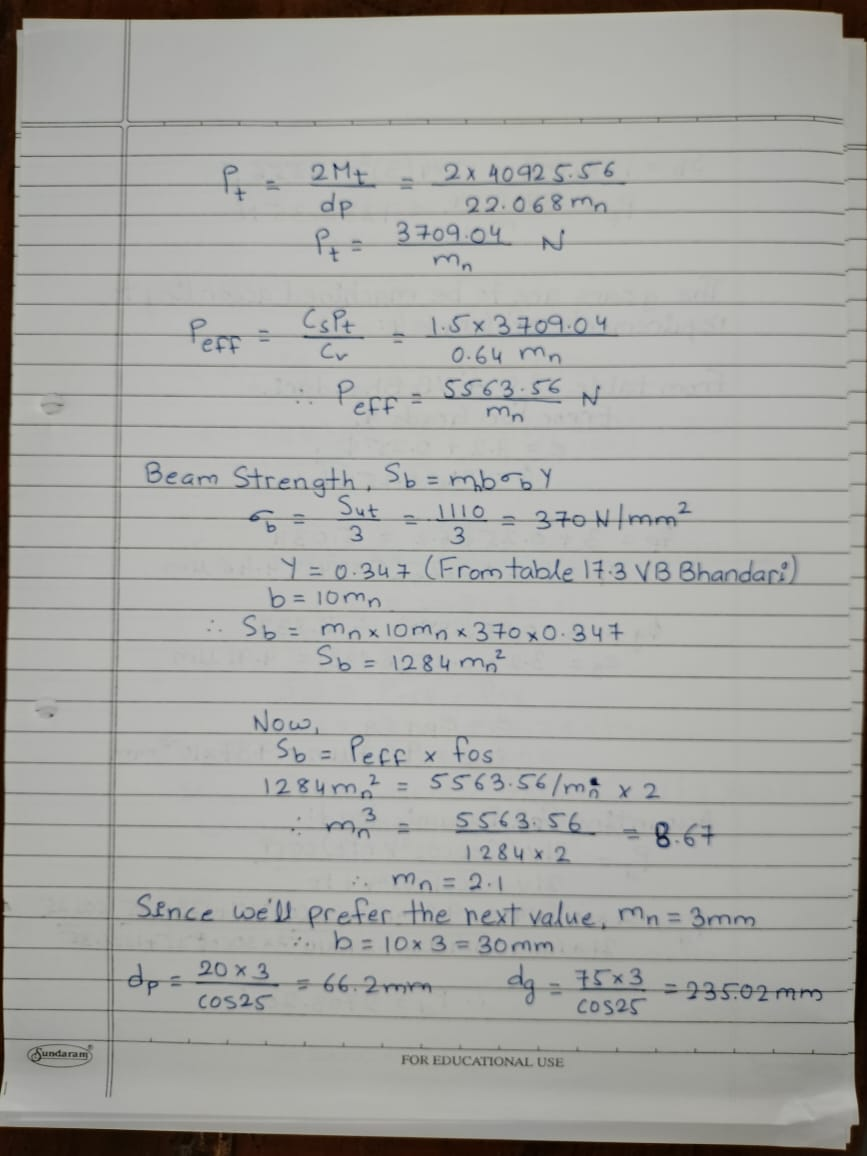 Pt = 2Mt / dp = 2 x 40925.56 / 22.068 mn
Pt = 3709.04 / mn N
Peff = CsPt / Cv = 1.5 x 3709.04 / 0.64 mn
∴ Peff = 5563.56 / mn N
Beam Strength, Sb = mnbσbY
σb = Sut / 3 = 1110 / 3 = 370 N/mm²
Y = 0.347 (From table 17.3 VB Bhandari)
b = 10mn
∴ Sb = mn x 10mn x 370 x 0.347
Sb = 1284 mn²
Now,
Sb = Peff x fos
1284mn² = 5563.56/mn x 2
∴ mn³ = 5563.56 / 1284 x 2 = 8.67
∴ mn = 2.1
Since we'll prefer the next value, mn = 3mm
∴ b = 10 x 3 = 30mm
dp = 20 x 3 / cos25 = 66.2mm dg = 75 x 3 / cos25 = 235.02 mm
Sundaram
FOR EDUCATIONAL USE